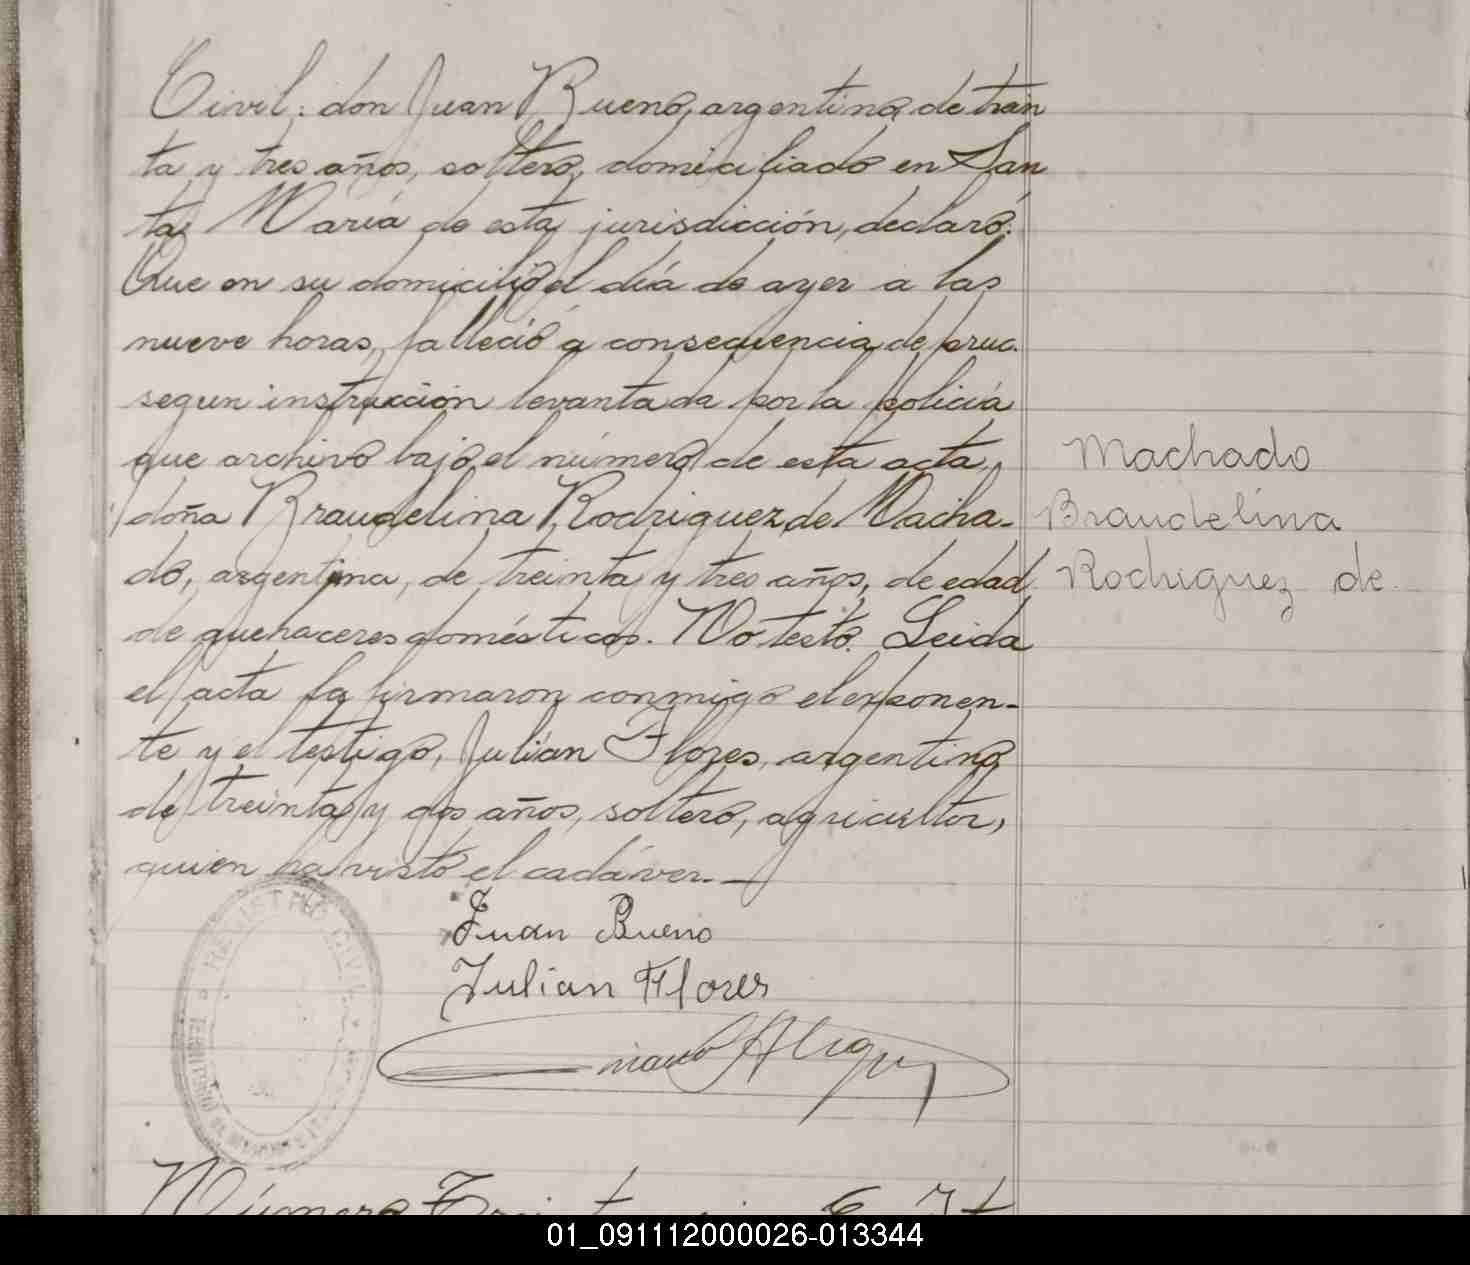 Civil: don Juan Bueno, argentino, de train
ta y tres años, soltero, domiciliado en San
ta María de esta jurisdicción, declaró:
Que en su domicilio el día de ayer a las
nueve horas, falleció a consecuencia de
segun instrucción levantada por la policiá
que archivo bajo el número de esta acta,
doña Braudelina Rodriguez de Macha-
do, argentina, de treinta y tres años, de edad
de quehaceres domésticos. No testó. Leida
el acta la firmaron conmigo el exponen-
te y el testigo, Julián Flores, argentino
de treinta y dos años, soltero, agricultor,
quien ha visto el cadáver.—
Machado
Braudelina
Rodriguez de
Juan Bueno
Julian Flores
REGISTRO CIVIL
Número Treinta
01_091112000026-013344